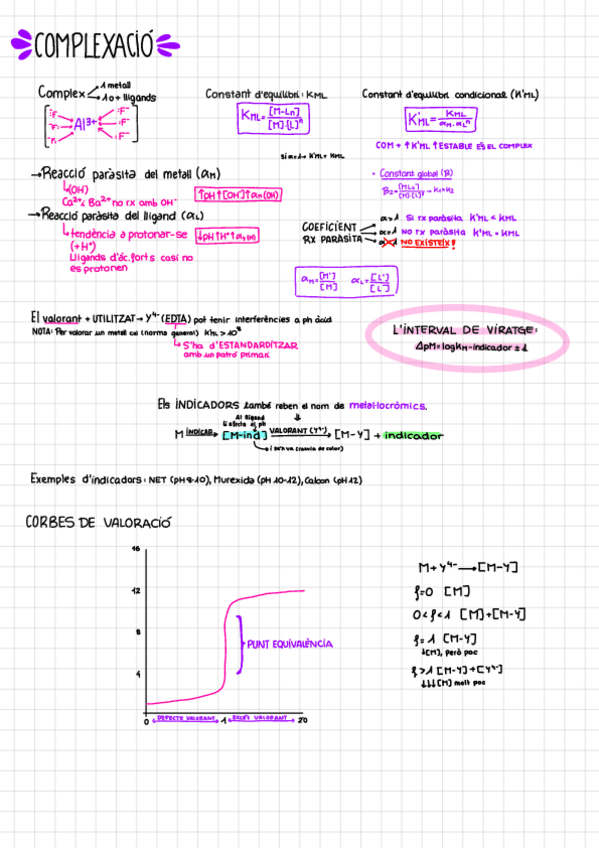 COMPLEXACIÓ
Complex
1 metall
1 o + lligands
:F⁻ :F⁻
:F⁻ Al³⁺ :F⁻
:F⁻ :F⁻
Constant d'equilibri: KML
KML = [M-Ln] / [M]·[L]ⁿ
si α=1 → K'ML = KML
Constant d'equilibri condicional (K'ML)
K'ML = KML / αM·αLⁿ
COM + ↑ K'ML ↑ ESTABLE ÉS EL COMPLEX
→ Reacció paràsita del metall (αM)
(OH)
Ca²⁺ i Ba²⁺ no rx amb OH⁻
↑pH ↑[OH] ↑αM(OH)
→ Reacció paràsita del lligand (αL)
tendència a protonar-se
(+H⁺)
Lligands d'àc. forts casi no
es protonen
↓pH ↑H⁺ ↑αL(H)
• Constant global (β)
COEFICIENT
RX PARÀSITA
α>1 Si rx paràsita K'ML < KML
α=1 No rx paràsita K'ML = KML
NO EXISTEIX!
αM = [M'] / [M] αL = [L'] / [L]
El valorant + UTILITZAT → Y⁴⁻ (EDTA) pot tenir interferències a ph àcid
NOTA: Per valorar un metall cal (norma general) KML > 10⁸
S'ha d'ESTANDARDITZAR
amb un patró primari
L'INTERVAL DE VIRATGE:
ΔpM = logKM-indicador ± 1
Els INDICADORS també reben el nom de metal·locròmics.
Al lligand
li afecta el ph
M INDICAD. → [M-ind] VALORANT (Y⁴⁻) → [M-Y] + indicador
(canvia de color)
Exemples d'indicadors: NET (pH 8-10), Murexida (pH 10-12), Calcon (pH 12)
CORBES DE VALORACIÓ
16
12
8
4
PUNT EQUIVALÈNCIA
0 DEFECTE VALORANT 1 EXCÉS VALORANT 20
M + Y⁴⁻ → [M-Y]
f=0 [M]
0<f<1 [M]+[M-Y]
f=1 [M-Y]
↓[M], però poc
f>1 [M-Y]+[Y⁴⁻]
↓↓↓[M] molt poc